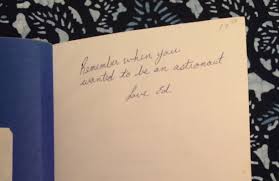 Remember when you
wanted to be an astronaut
Love Ed